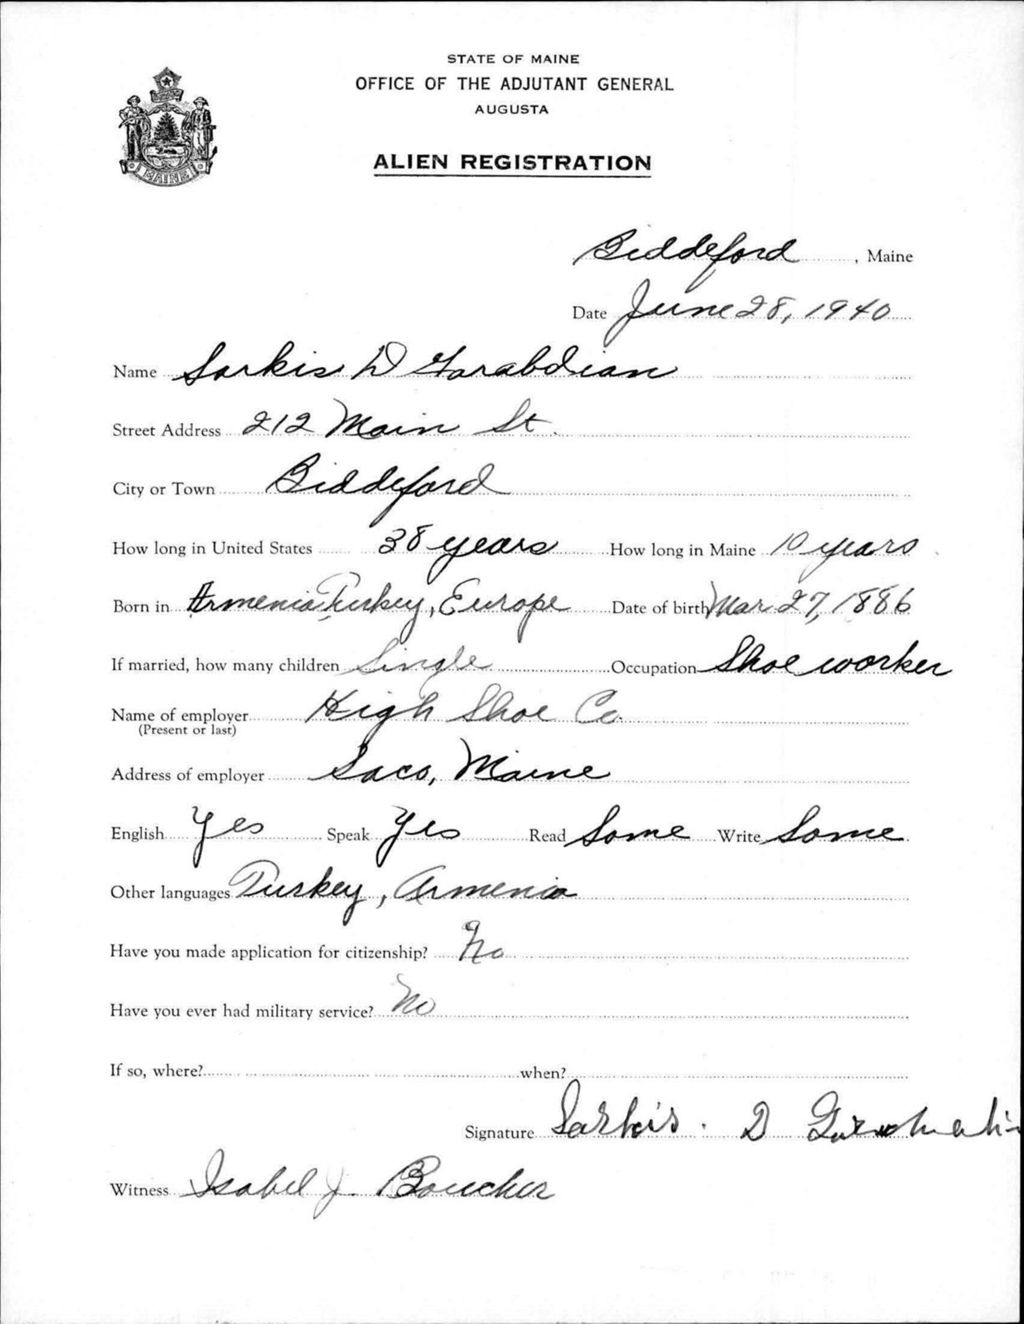 STATE OF MAINE
OFFICE OF THE ADJUTANT GENERAL
AUGUSTA
ALIEN REGISTRATION
MAINE
Biddeford, Maine
Date June 28, 1940
Name Sarkis D Garabdian
Street Address 212 Main St.
City or Town Biddeford
How long in United States 38 years How long in Maine 10 years
Born in Armenia, Turkey, Europe Date of birth Mar. 27, 1886
If married, how many children Single Occupation Shoe worker
Name of employer High Shoe Co.
(Present or last)
Address of employer Saco, Maine
English Yes Speak Yes Read Some Write Some
Other languages Turkey, Armenia
Have you made application for citizenship? No
Have you ever had military service? No
If so, where? when?
Signature Sarkis. D
Witness Isabel J. Boucher